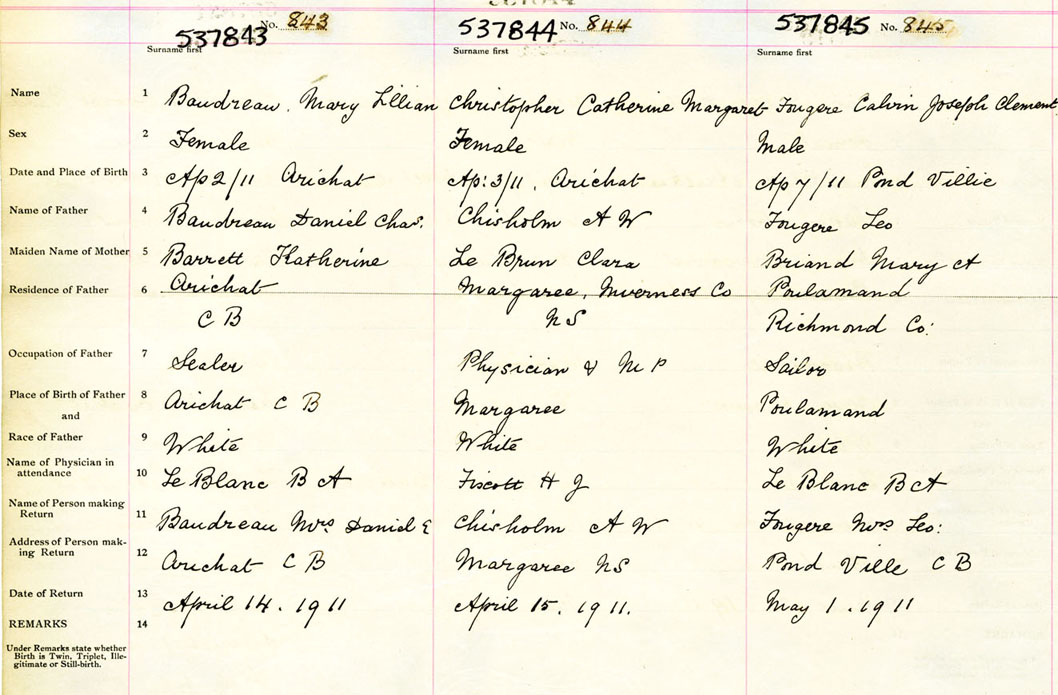 537843 No. 843 537844 No. 844 537845 No. 845
Surname first Surname first Surname first
Name 1 Baudreau. Mary Lillian Christopher Catherine Margaret Fougere Calvin Joseph Clement
Sex 2 Female Female Male
Date and Place of Birth 3 Ap 2/11 Arichat Ap: 3/11, Arichat Ap 7/11 Pond Villie
Name of Father 4 Baudreau Daniel Chas. Chisholm A W Fougere Leo
Maiden Name of Mother 5 Barrett Katherine Le Brun Clara Briand Mary A
Residence of Father 6 Arichat Margaree, Inverness Co Poulamand
C B N S Richmond Co:
Occupation of Father 7 Sealer Physician & M P Sailor
Place of Birth of Father 8 Arichat C B Margaree Poulamand
and
Race of Father 9 White White White
Name of Physician in
attendance 10 Le Blanc B A Fiscott H J Le Blanc B A
Name of Person making
Return 11 Baudreau Mrs Daniel E Chisholm A W Fougere Mrs Leo:
Address of Person mak-
ing Return 12 Arichat C B Margaree NS Pond Ville C B
Date of Return 13 April 14. 1911 April 15. 1911. May 1. 1911
REMARKS 14
Under Remarks state whether
Birth is Twin, Triplet, Ille-
gitimate or Still-birth.